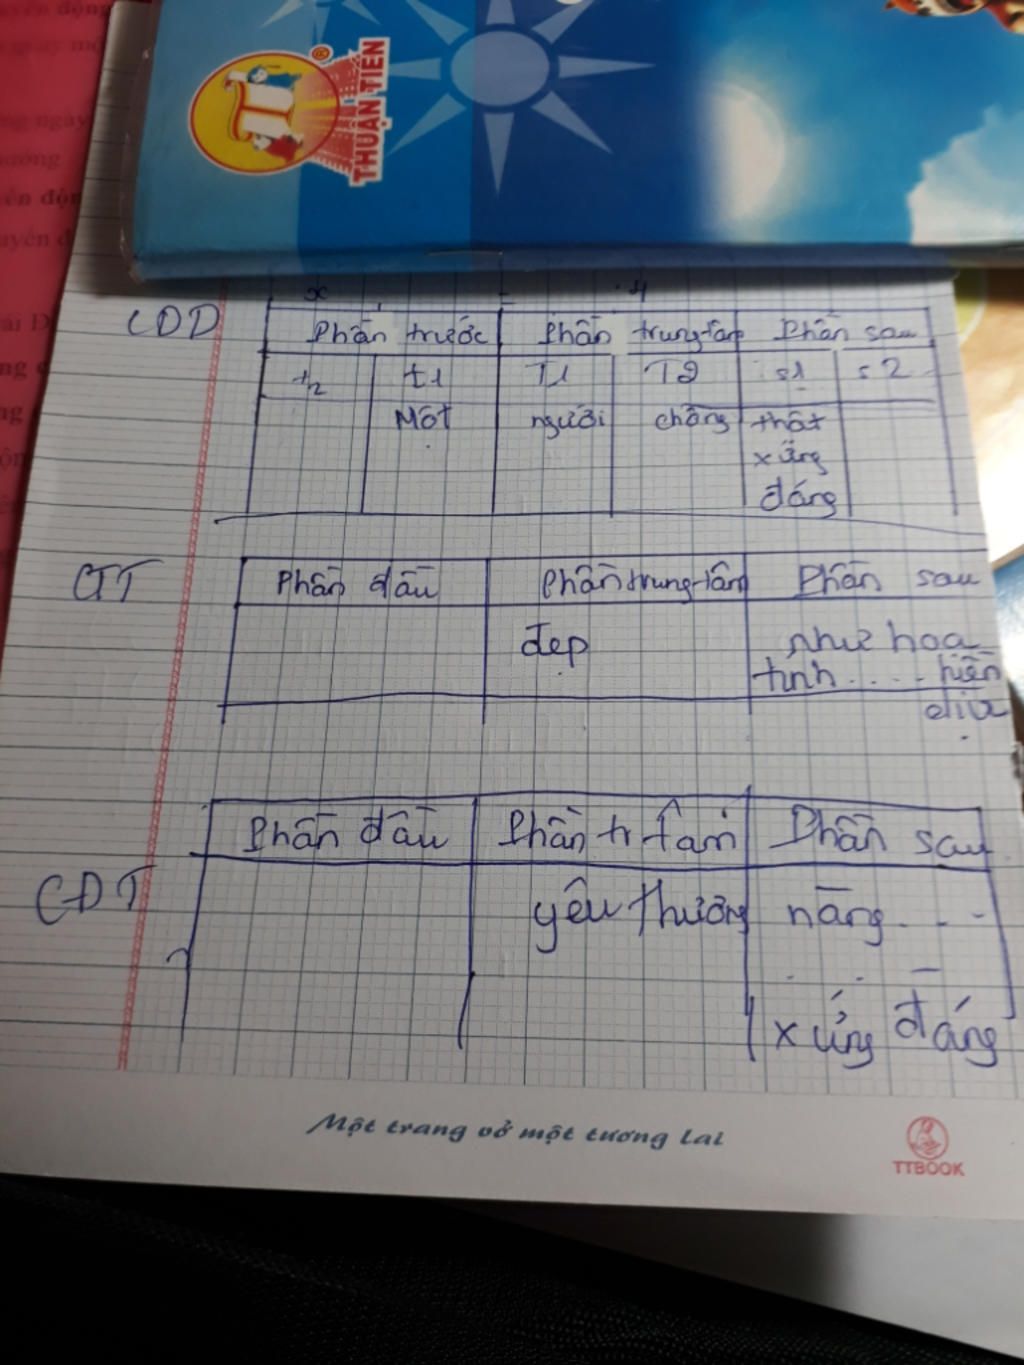 THUẬN TIẾN
CDD
Phần trước Phần trung tâm Phần sau
t2 t1 T1 T2 s1 s2
Một người chồng thật
xứng
đáng
CTT
Phần đầu Phần trung tâm Phần sau
đẹp như hoa
tính .... hiền
dịu
CĐT
Phần đầu Phần tr tâm Phần sau
yêu thương nàng...
xứng đáng
Một trang vở một tương lai
TTBOOK